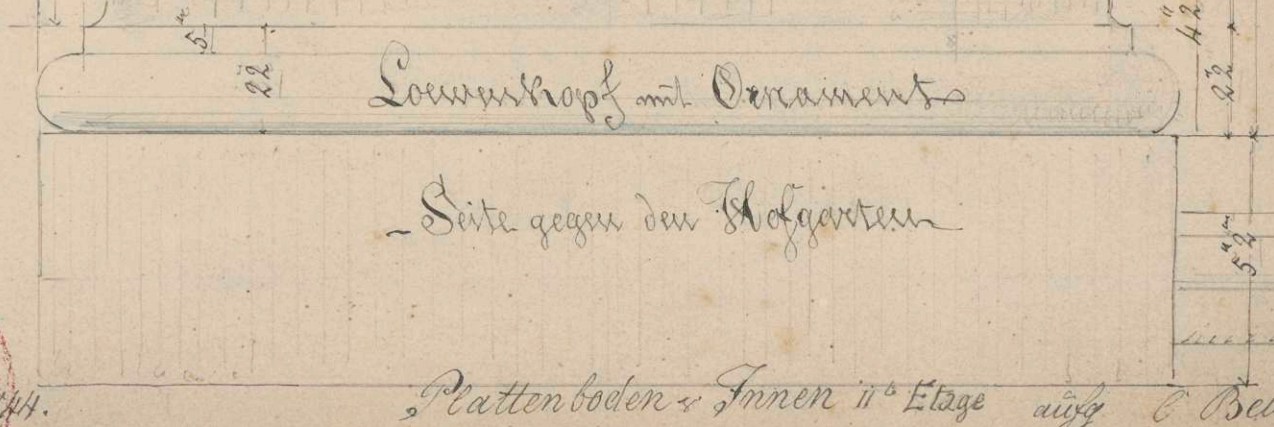 5"
22"
42"
22"
Loewenkopf mit Ornament
- Seite gegen den Hofgarten
52"
44.
Plattenboden Innen II Etage aufg